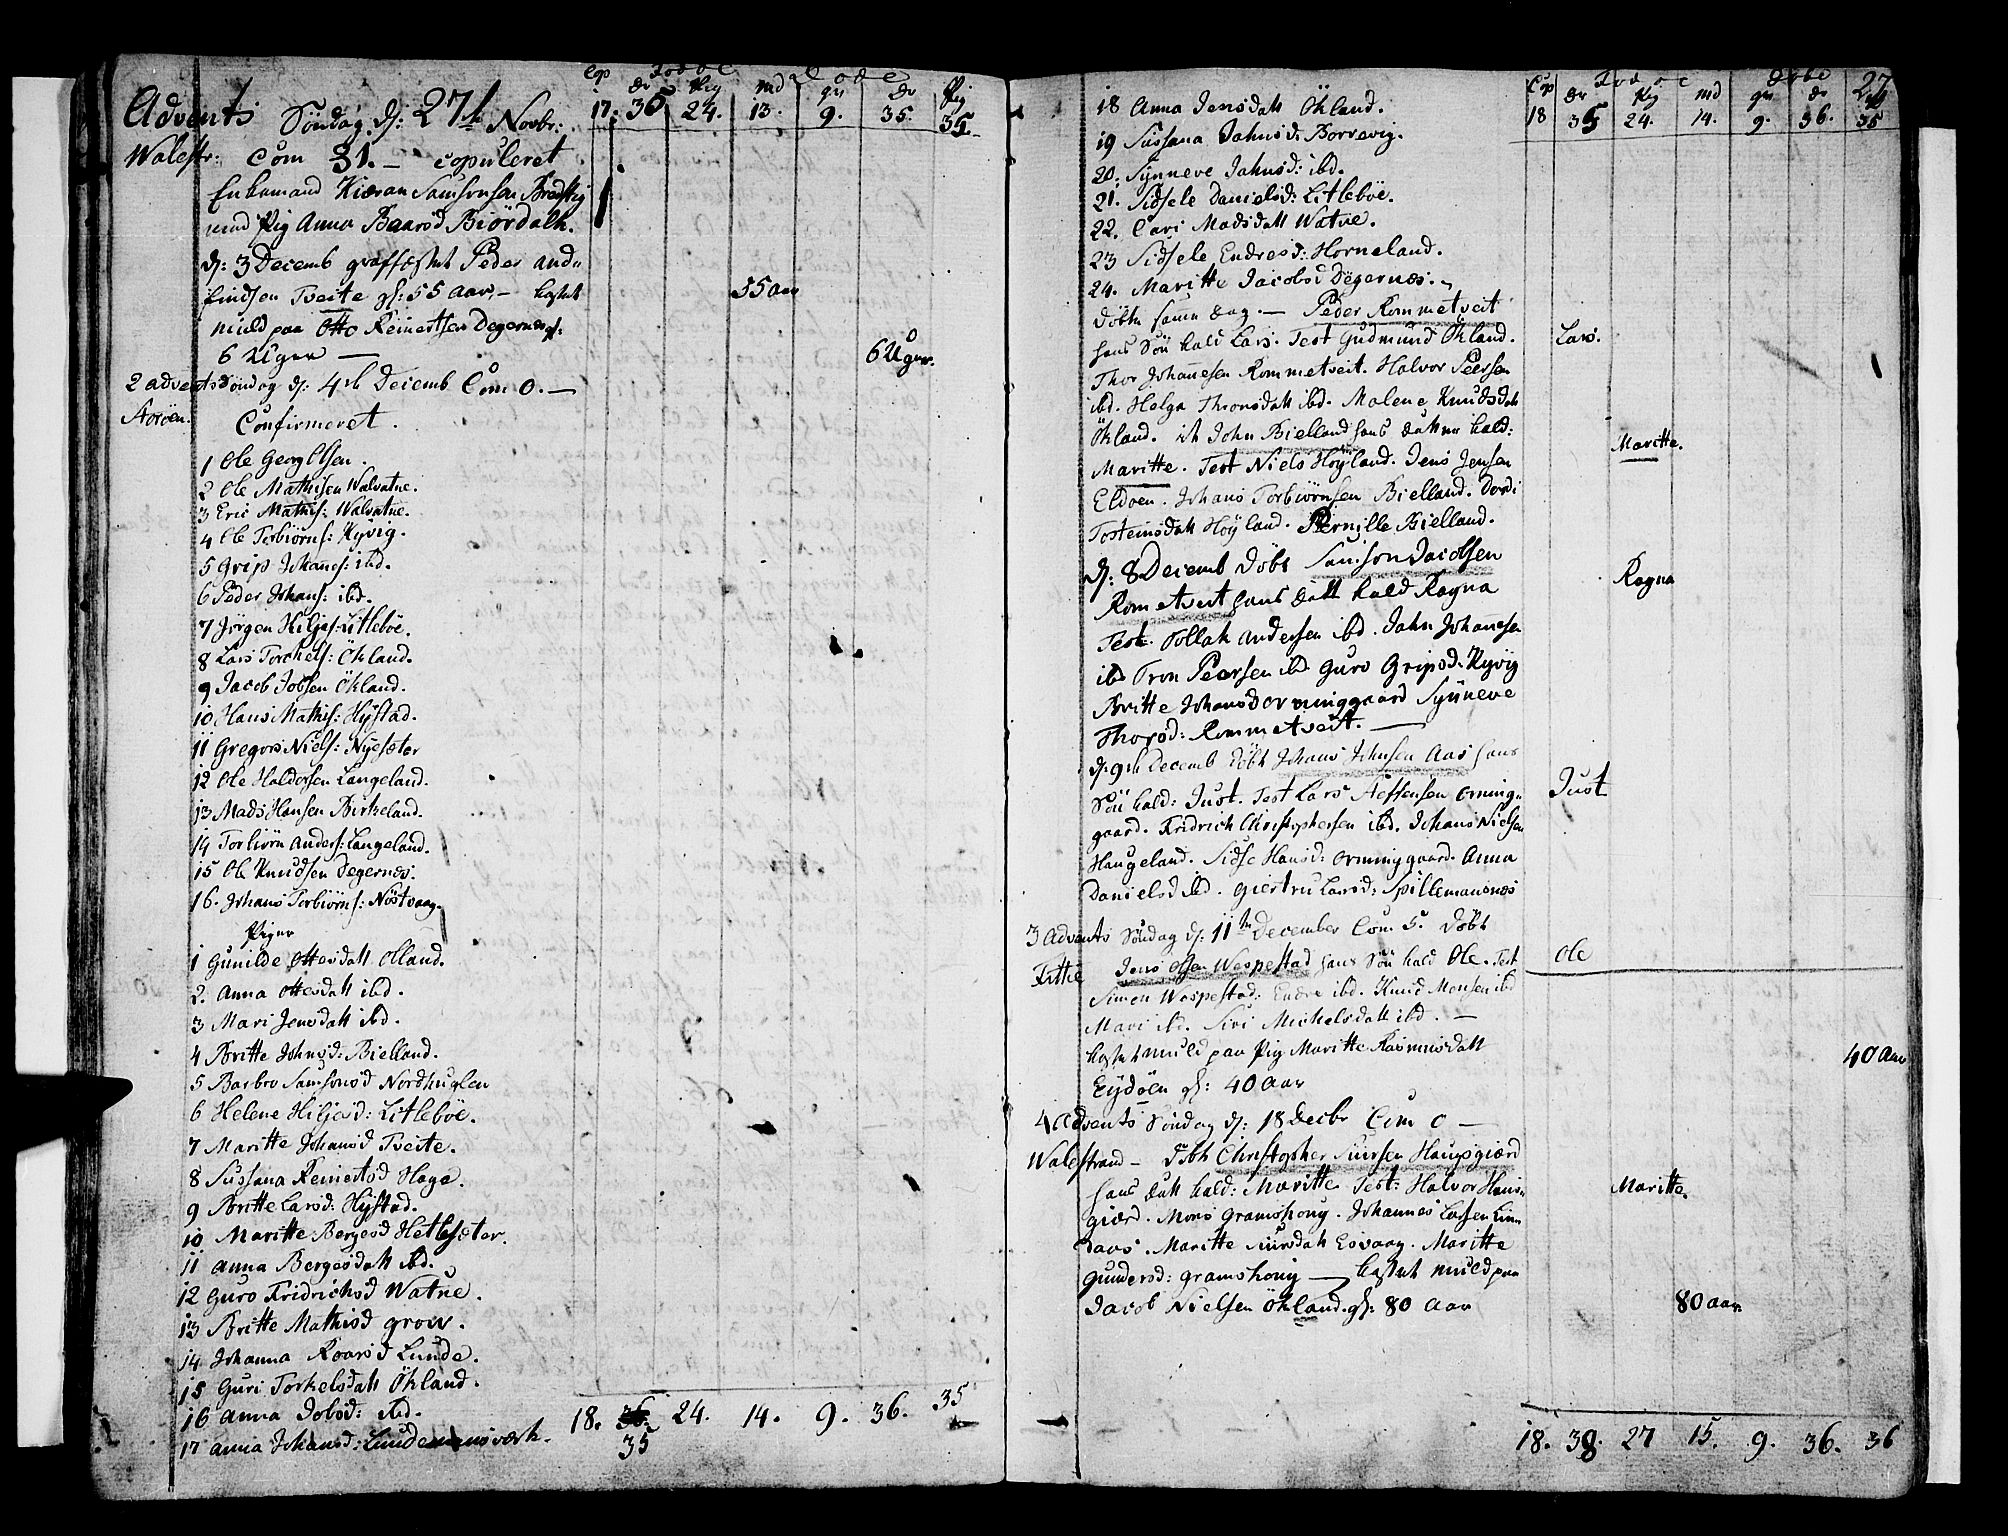 Advents Söndag d: 27de Novbr:
Walestr: Com 31. — copuleret
Enkemand Samsonsen
med Pig Anna Baarsd
d: 3 Decemb graffæstet Peder
Tveite gl: 55 aar — kastet
muld paa Otto Reinertsen Degernæs gl:
6 Uger —
2 advents Söndag d: 4de Decemb Com 0. —
Storöen. Confirmeret.
1 Ole Georg Olsen.
2 Ole Mathisen Walvatne.
3 Eric Mathis: Walvatne.
4 Ole Torbiörns: Kyvig.
5 Grip Johanes: ibd.
6 Peder Johans: ibd.
7 Jörgen Hiljes: Litleböe.
8 Lars Torchels: Ökland.
9 Jacob Jobsen Ökland.
10 Hans Mathis: Hÿstad.
11 Gregors Niels: Nysæter
12 Ole Haldorsen Langeland.
13 Mads Hansen Birkeland.
14 Torbiörn Anders: Langeland.
15 Ole Knudsen Degernæs.
16. Johans Torbiörns: Nöstvaag.
Piger
1 Gunilde Ottesdatt Olland.
2. Anna Ottesdatt ibd.
3 Mari Jensdatt ibd.
4 Britte Johnsd: Bielland.
5 Barbro Samsonsd Nordhuglen
6 Helene Hiljesd: Litleböe.
7 Maritte Johansd Tveite.
8 Sussana Reinertsd Haga.
9 Britte Larsd: Hÿstad.
10 Maritte Bergesd Hetlesæter.
11 Anna Bergesdatt ibd.
12 Guro Fridrichsd Watne.
13 Britte Mathisd grow.
14 Johanna Roarsd Lunde.
15 Guri Torkelsdatt Ökland.
16 Anna Jobsd: ibd.
17 Anna Johansd:
Cop Födde Döde
17. 35 24. 13. 9. 35. 35.
55 aar
6 Uger.
18. 36. 24. 14. 9. 36. 35
35
18 Anna Jensdatt Ökland.
19 Sussana Jahnsd: Borrevig.
20. Synneve Jahnsd: ibd.
21. Sidsele Danielsd: Litleböe.
22. Cari Madsdatt Watne.
23 Sidsele Endresd: Horneland.
24. Maritte Jacobsd Degernæs.
Döbte samme Dag — Peder Rommetveit
hans Sön kald Lars. Test Gudmund Ökland.
Thor Johanesen Rommetveit. Halvor Peersen
ibd. Helga Thronsdatt ibd. Malene Knudsdatt
Ökland. it John Bielland hans datter kald:
Maritte. Test Niels Höyland. Jens Jensen
Eldöen. Johans Torbiörnsen Bielland. Dordi
Tosteinsdatt Höyland. Pernille Bielland.
d: 8 Decemb Döbt Samson Jacobsen
Rometveit hans Datt kald Ragna
Test. Tollak Andersen ibd. Jahn Johanesen
ibd Tron Peersen ibd Guro Gripsd. Kyvig
Britte Johansd Orninggaard Synneve
Thorsd: Rommetveit. —
d: 9de Decemb Döbt Johans Johnsen Aas hans
Sön kald: Just. Test Lars Steffensen Orning-
gaard. Fridrich Christophersen ibd. Johans Nielsen
Haugeland. Sidse Hansd: Orninggaard. Anna
Danielsd ibd. Giertru Larsd: Spillemansnæs
3 Advents Söndag d: 11te December Com 5. Döbt
Fittie Jens Olsen Wespestad hans Sön kald Ole. Test
Simon Wespestad: Endre ibd. Knud Monsen ibd
Mari ibd. Siri Michelsdatt ibd. —
kastet muld paa Pig Maritte Rasmusdatt
Eydöen gl: 40 aar
4 Advents Söndag d: 18 Decbr Com 0 —
Walestrand — Döbt Christopher Siursen Haugsgiærd
hans Datt kald: Maritte Test: Halvor
giærd. Mons Gramshoug. Johannes Larsen
Maritte Siursdatt Esvaag. Maritte
Gundersd: Gramshoug — kastet muld paa
Jacob Nielsen Ökland. gl: 80 aar
27
Cop Födde Döde
18 35 24. 14. 9. 36. 35
Lars.
Maritte.
Ragna
Just
Ole
40 aar
Maritte.
80 aar
18. 38. 27 15. 9. 36. 36